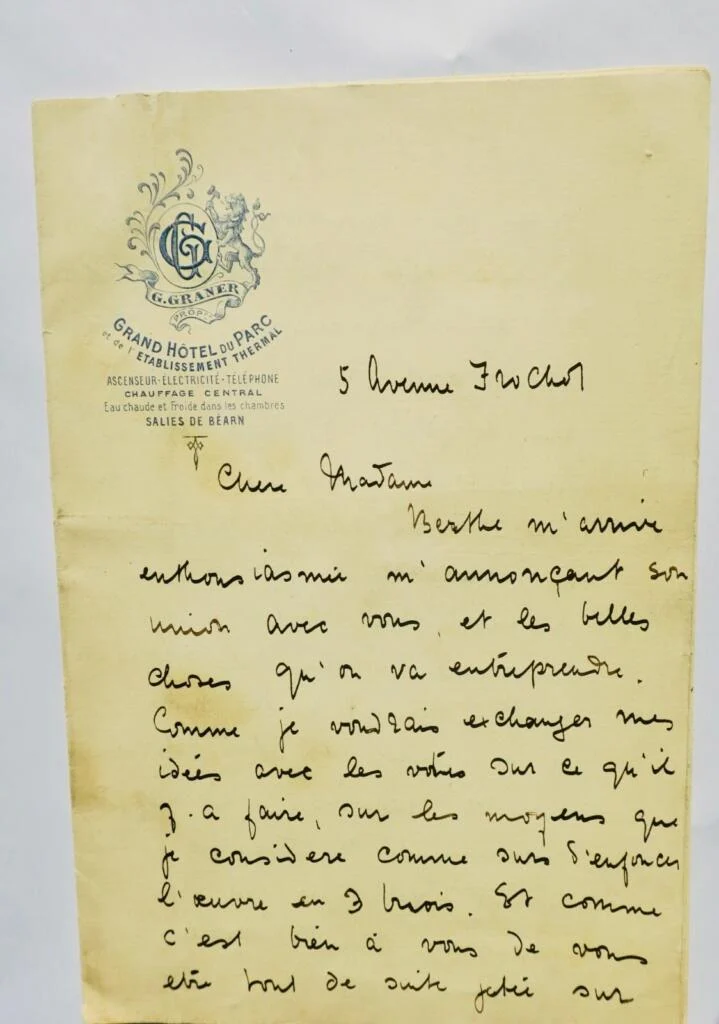 GG
G. GRANER
PROPRE
GRAND HÔTEL DU PARC
et de l'ETABLISSEMENT THERMAL
ASCENSEUR-ÉLECTRICITÉ-TÉLÉPHONE
CHAUFFAGE CENTRAL
Eau chaude et Froide dans les chambres
SALIES DE BÉARN
5 Avenue Frochot
Chere Madame
Berthe m'arrive
enthousiasmée m'annonçant son
union avec vous, et les belles
choses qu'on va entreprendre.
Comme je voudrais exchanger mes
idées avec les votres sur ce qu'il
y a faire, sur les moyens que
je considere comme surs d'enfoncer
l'œuvre en 3 mois. Et comme
c'est bien à vous de vous
etre tout de suite jetée sur